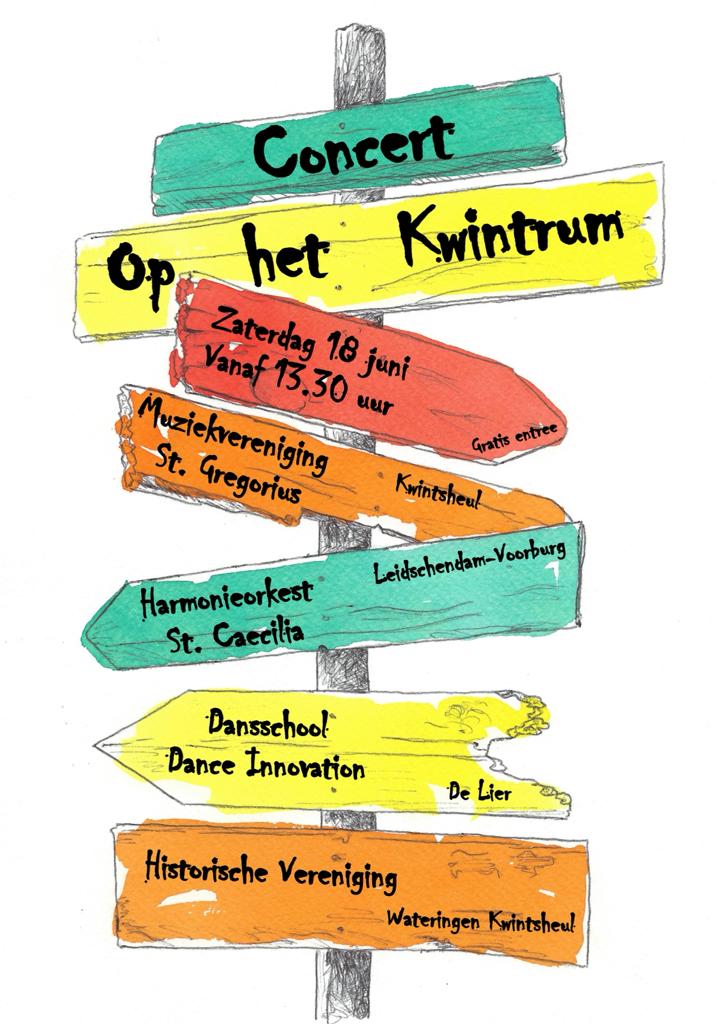 Concert
Op het Kwintrum
Zaterdag 18 juni
Vanaf 13.30 uur
Gratis entree
Muziekvereniging
St. Gregorius
Kwintsheul
Leidschendam-Voorburg
Harmonieorkest
St. Caecilia
Dansschool
Dance Innovation
De Lier
Historische Vereniging
Wateringen Kwintsheul